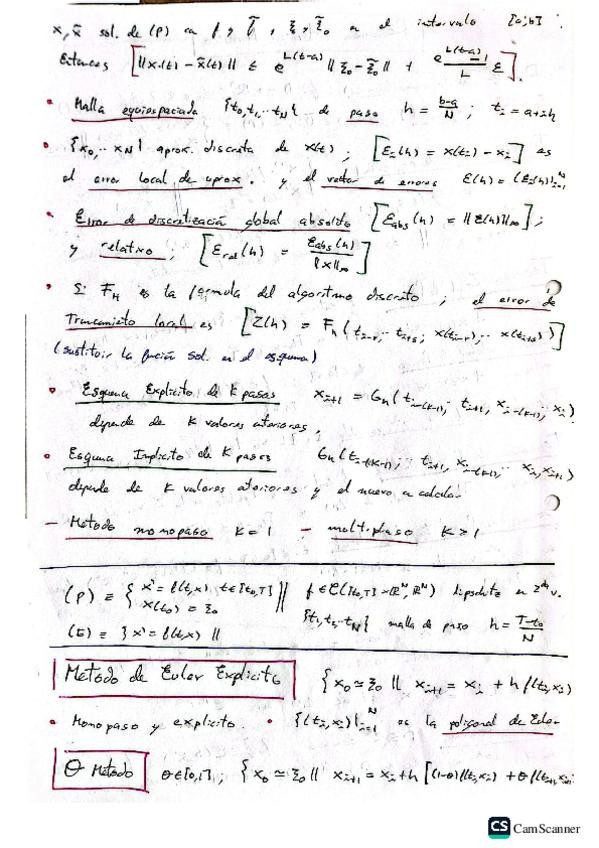 x, x̃ sol. de (P) con f y f̃, ξ₀ y ξ̃₀ en el intervalo [a,b].
Entonces [||x(t) - x̃(t)|| ≤ e^{L(t-a)} ||ξ₀ - ξ̃₀|| + (e^{L(t-a)} - 1)/L ε].
• Malla equiespaciada {t₀, t₁, ... t_N} de paso h = (b-a)/N ; t_i = a + ih
• {x₀, ... x_N} aprox. discreta de x(t) ; [ε_i(h) = x(t_i) - x_i] es
el error local de aprox. y el vector de errores ε(h) = (ε_i(h))_{i=1}^N
• Error de discretización global absoluto [ε_abs(h) = ||ε(h)||_∞] ;
y relativo ; [ε_rel(h) = ε_abs(h)/||x||_∞]
• Si F_h es la fórmula del algoritmo discreto ; el error de
Truncamiento local es [Z(h) = F_h(t_{i-r}, ... t_{i+s} ; x(t_{i-r}), ... x(t_{i+s}))]
(sustituir la función sol. en el esquema)
• Esquema Explícito de K pasos x_{i+1} = G_h(t_{i-(k-1)}, ... t_{i+1}, x_{i-(k-1)}, ... x_i)
depende de K valores anteriores.
• Esquema Implícito de K pasos G_h(t_{i-(k-1)}, ... t_{i+1}, x_{i-(k-1)}, ... x_i, x_{i+1})
depende de K valores anteriores y el nuevo a calcular
- Método monopaso K = 1 - multipaso K > 1
(P) ≡ { x' = f(t,x) t ∈ [t₀,T] x(t₀) = ξ₀ || f ∈ C([t₀,T] × ℝᴺ, ℝᴺ) lipschitz en 2ª v.
(E) ≡ } x' = f(t,x) || {t₁, t₂, ... t_N} malla de paso h = (T-t₀)/N
Método de Euler Explícito {x₀ ≃ ξ₀ || x_{i+1} = x_i + h f(t_i, x_i)
• Monopaso y explícito. • {(t_i, x_i)}_{i=1}^N es la poligonal de Euler
θ Método θ ∈ [0,1] ; {x₀ ≃ ξ₀ || x_{i+1} = x_i + h [(1-θ) f(t_i, x_i) + θ f(t_{i+1}, x_{i+1}
CS CamScanner